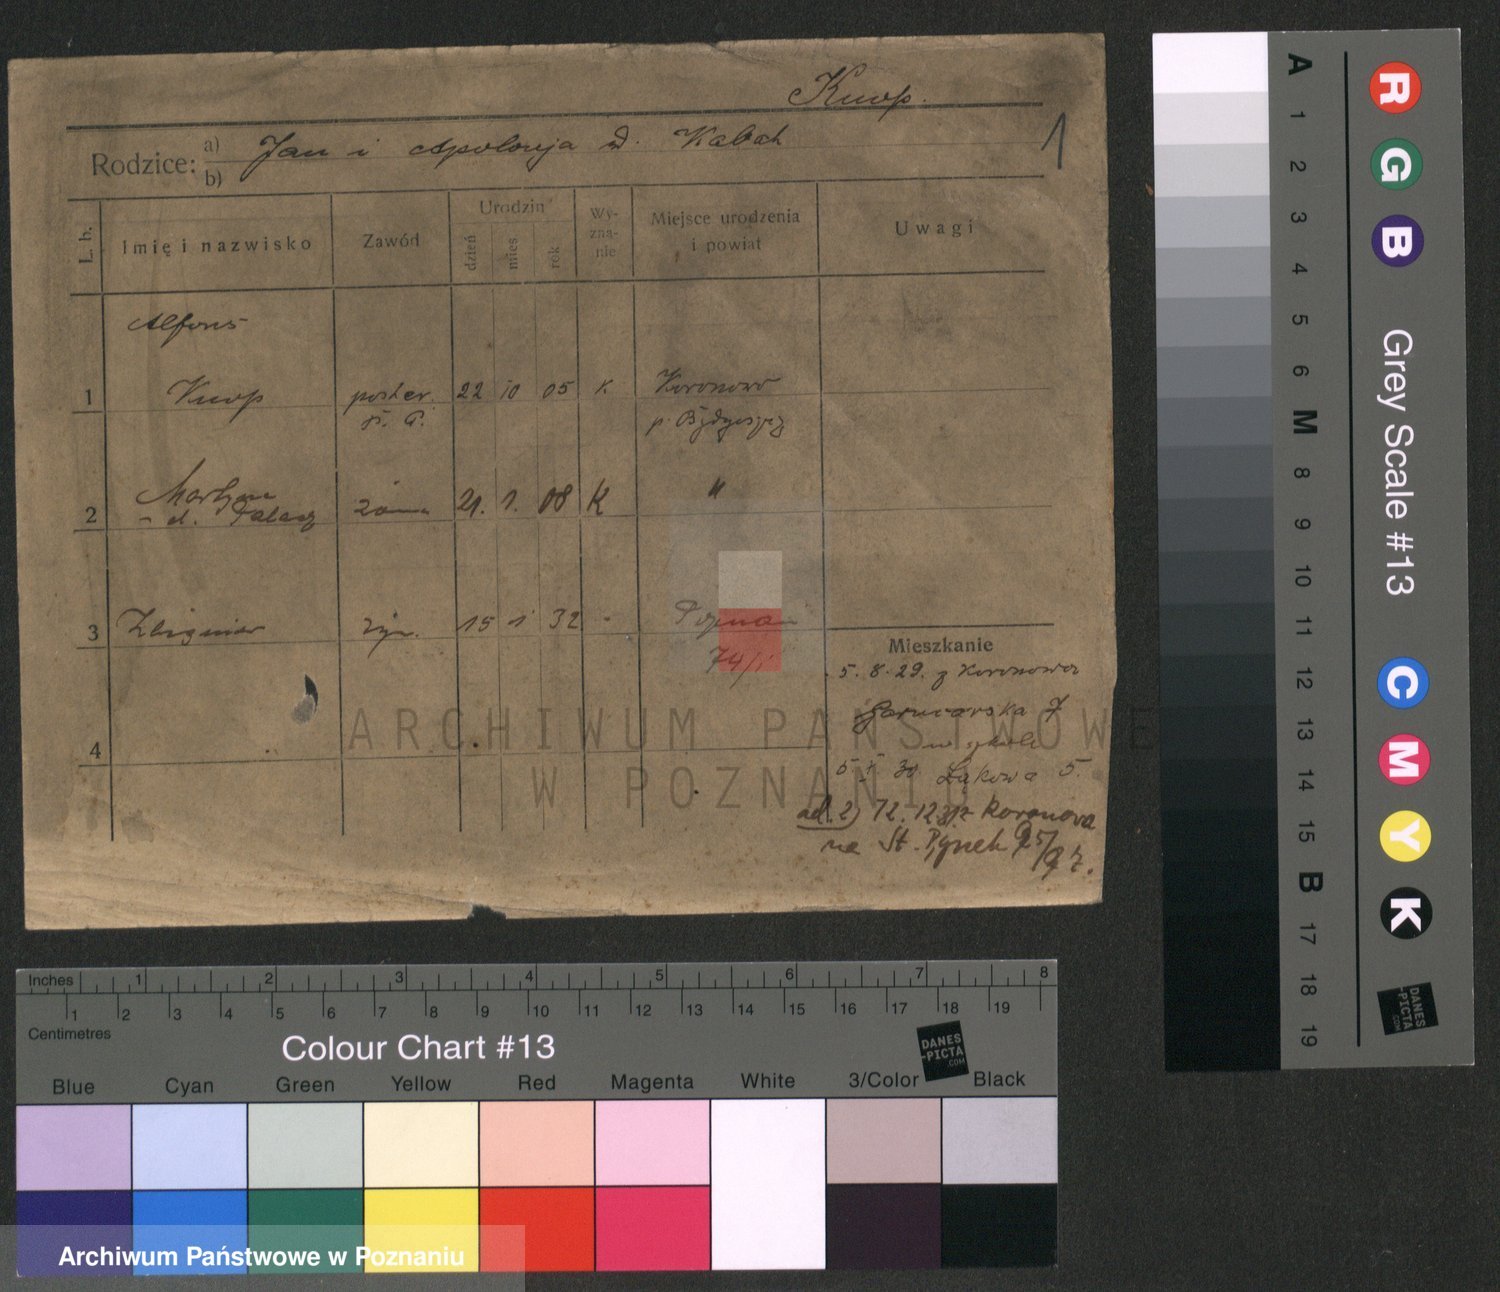 Knop.
1
Rodzice: a) Jan i Apolonja d. Kabat
b)
L. b. Imię i nazwisko Zawód Urodzin dzień mies rok Wy-zna-nie Miejsce urodzenia i powiat Uwagi
Alfons
1 Knop poster. 22 10 05 K Koronowo
P. P. p. Bydgoszcz
2 Martyna żona 21. 1. 08 K "
- d.
3 Zbigniew syn. 15 1 32 - Poznań
74/1
4
Mieszkanie
5. 8. 29. z Koronowa
Garncarska 7
w szkole
5. 30 Łąkowa 5.
ad. 2) 12. 12 31 z Koronowa
na St. Rynek 95/97.
ARCHIWUM PAŃSTWOWE
W POZNANIU
A 1 2 3 4 5 6 M 8 9 10 11 12 13 14 15 B 17 18 19
R G B Grey Scale #13 C M Y K
DANES-PICTA.COM
Inches 1 2 3 4 5 6 7 8
1 2 3 4 5 6 7 8 9 10 11 12 13 14 15 16 17 18 19
Centimetres
Colour Chart #13
DANES-PICTA.COM
Blue Cyan Green Yellow Red Magenta White 3/Color Black
Archiwum Państwowe w Poznaniu